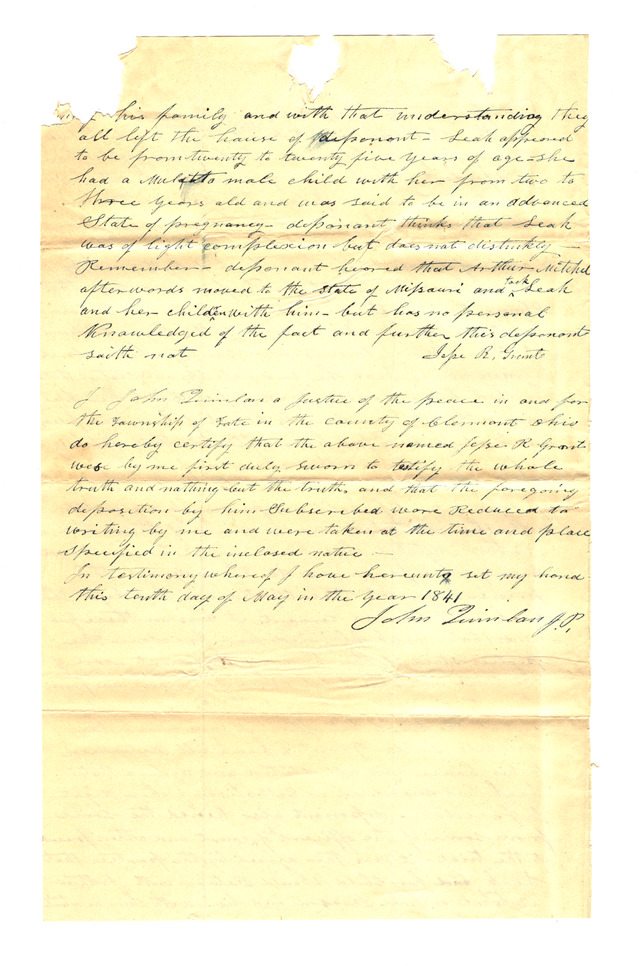 his family and with that understanding they
all left the house of deponent - Leah appeared
to be from twenty to twenty five years of age - she
had a Mulatto male child with her from two to
three years old and was said to be in an advanced
State of pregnancy - deponant thinks that Leah
was of light complexion but does not distinkly -
Remember - deponant heared that Arthur Mitchel
afterwords moved to the state of Missouri and took Leah
and her children with him - but has no personal
Knowledged of the fact and further this deponant
saith not Jesse R. Grant
I John Quinlan a Justice of the peace in and for
the Township of Tate in the county of Clermont Ohio
do hereby certify that the above named Jesse R Grant
was by me first duly sworn to testify the whole
truth and nothing but the truth, and that the foregoing
deposition by him Subscribed were Reduced to
writing by me and were taken at the time and place
specified in the inclosed notice -
In testimony whereof I have hereunto set my hand
this tenth day of May in the year 1841
John Quinlan J.P.